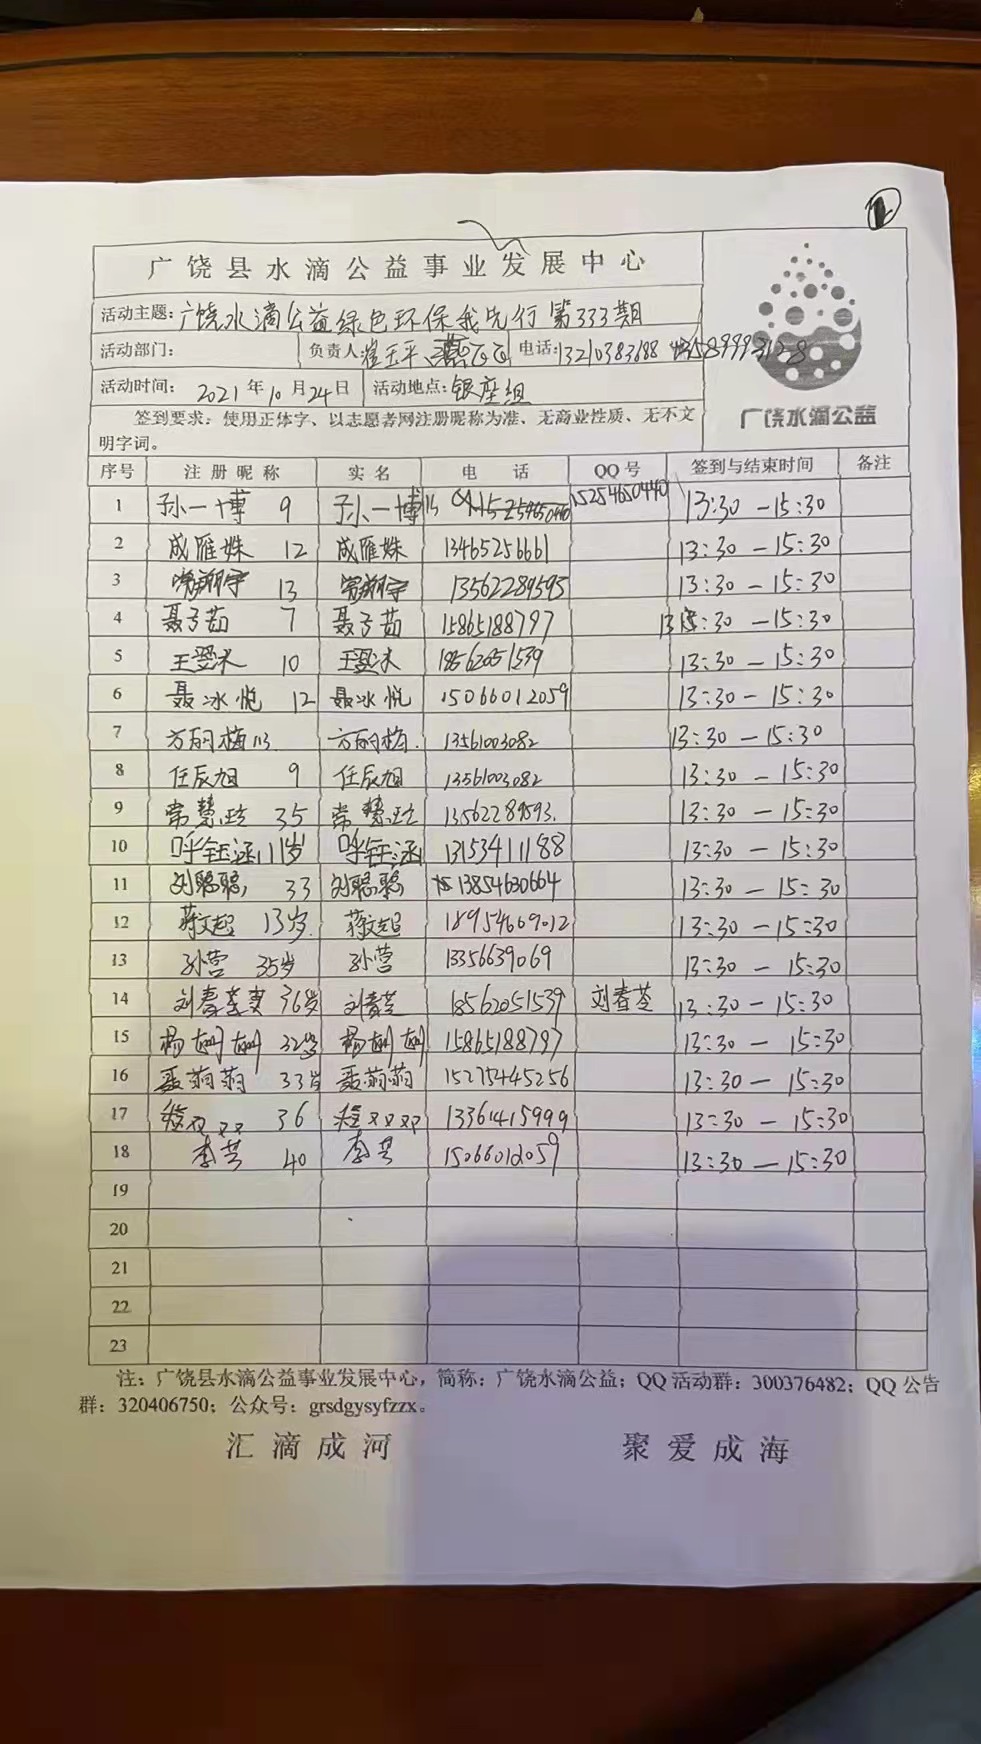 广饶县水滴公益事业发展中心
活动主题：广饶水滴公益绿色环保我先行第333期
广饶水滴公益
活动部门： 负责人 电话：13210383688
活动时间： 2021年10月24日 活动地点：银座组
签到要求：使用正体字、以志愿者网注册昵称为准、无商业性质、无不文
明字词。
序号 注册昵称 实名 电话 QQ号 签到与结束时间 备注
1 孙一博 9 孙一博 15254650440 13:30－15:30
2 成雁姝 12 成雁姝 13465256661 13:30－15:30
3 13 13562289593 13:30－15:30
4 聂子茹 7 聂子茹 15865188797 13:30－15:30
5 10 18562051539 13:30－15:30
6 聂冰悦 12 聂冰悦 15066012059 13:30－15:30
7 13561003082 13:30－15:30
8 任辰旭 9 任辰旭 13561003082 13:30－15:30
9 常慧 35 常慧 13562289593. 13:30－15:30
10 呼钰涵 11岁 呼钰涵 13153411188 13:30－15:30
11 刘聪聪 33 刘聪聪 13854630664 13:30－15:30
12 蒋文超 13岁. 蒋文超 18954669012 13:30－15:30
13 孙营 35岁 孙营 13356639069 13:30－15:30
14 刘春芝 36岁 刘春芝 18562051539 刘春芝 13:30－15:30
15 杨姗姗 32岁 杨姗姗 15865188797 13:30－15:30
16 聂萌萌 33岁 聂萌萌 15275445256 13:30－15:30
17 程双双 36 程双双 13361415999 13:30－15:30
18 李芸 40 李芸 15066012059 13:30－15:30
19
20
21
22
23
注：广饶县水滴公益事业发展中心，简称：广饶水滴公益；QQ活动群：300376482；QQ公告
群：320406750；公众号：grsdgysyfzzx。
汇滴成河 聚爱成海